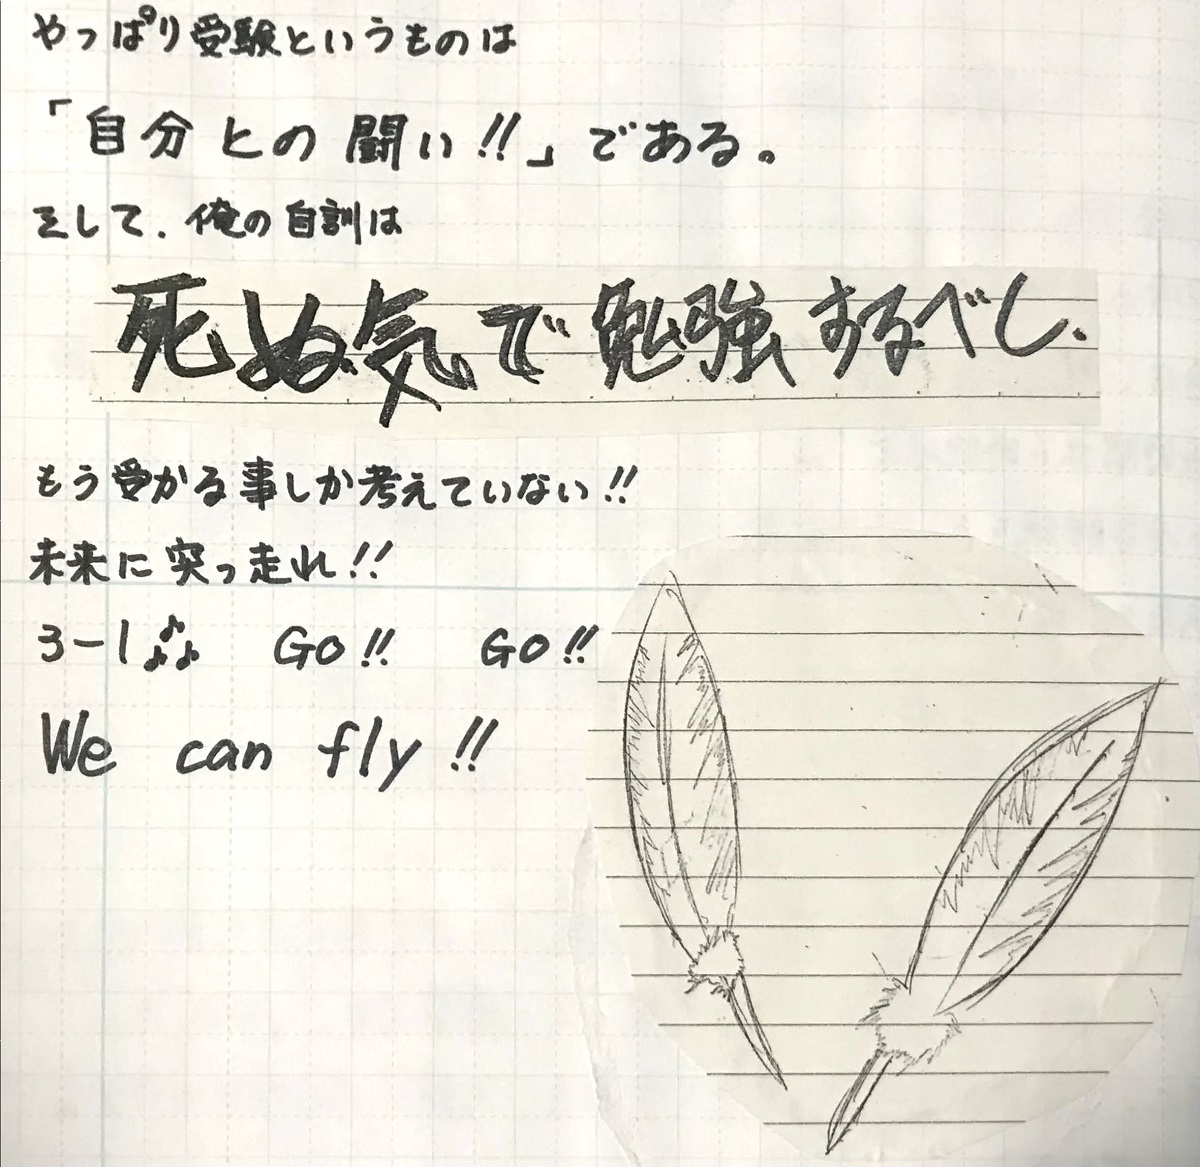 やっぱり受験というものは
「自分との闘い!!」である。
そして、俺の自訓は
死ぬ気で勉強するべし.
もう受かる事しか考えていない!!
未来に突っ走れ!!
3-1♪♪♪ GO!! GO!!
We can fly!!